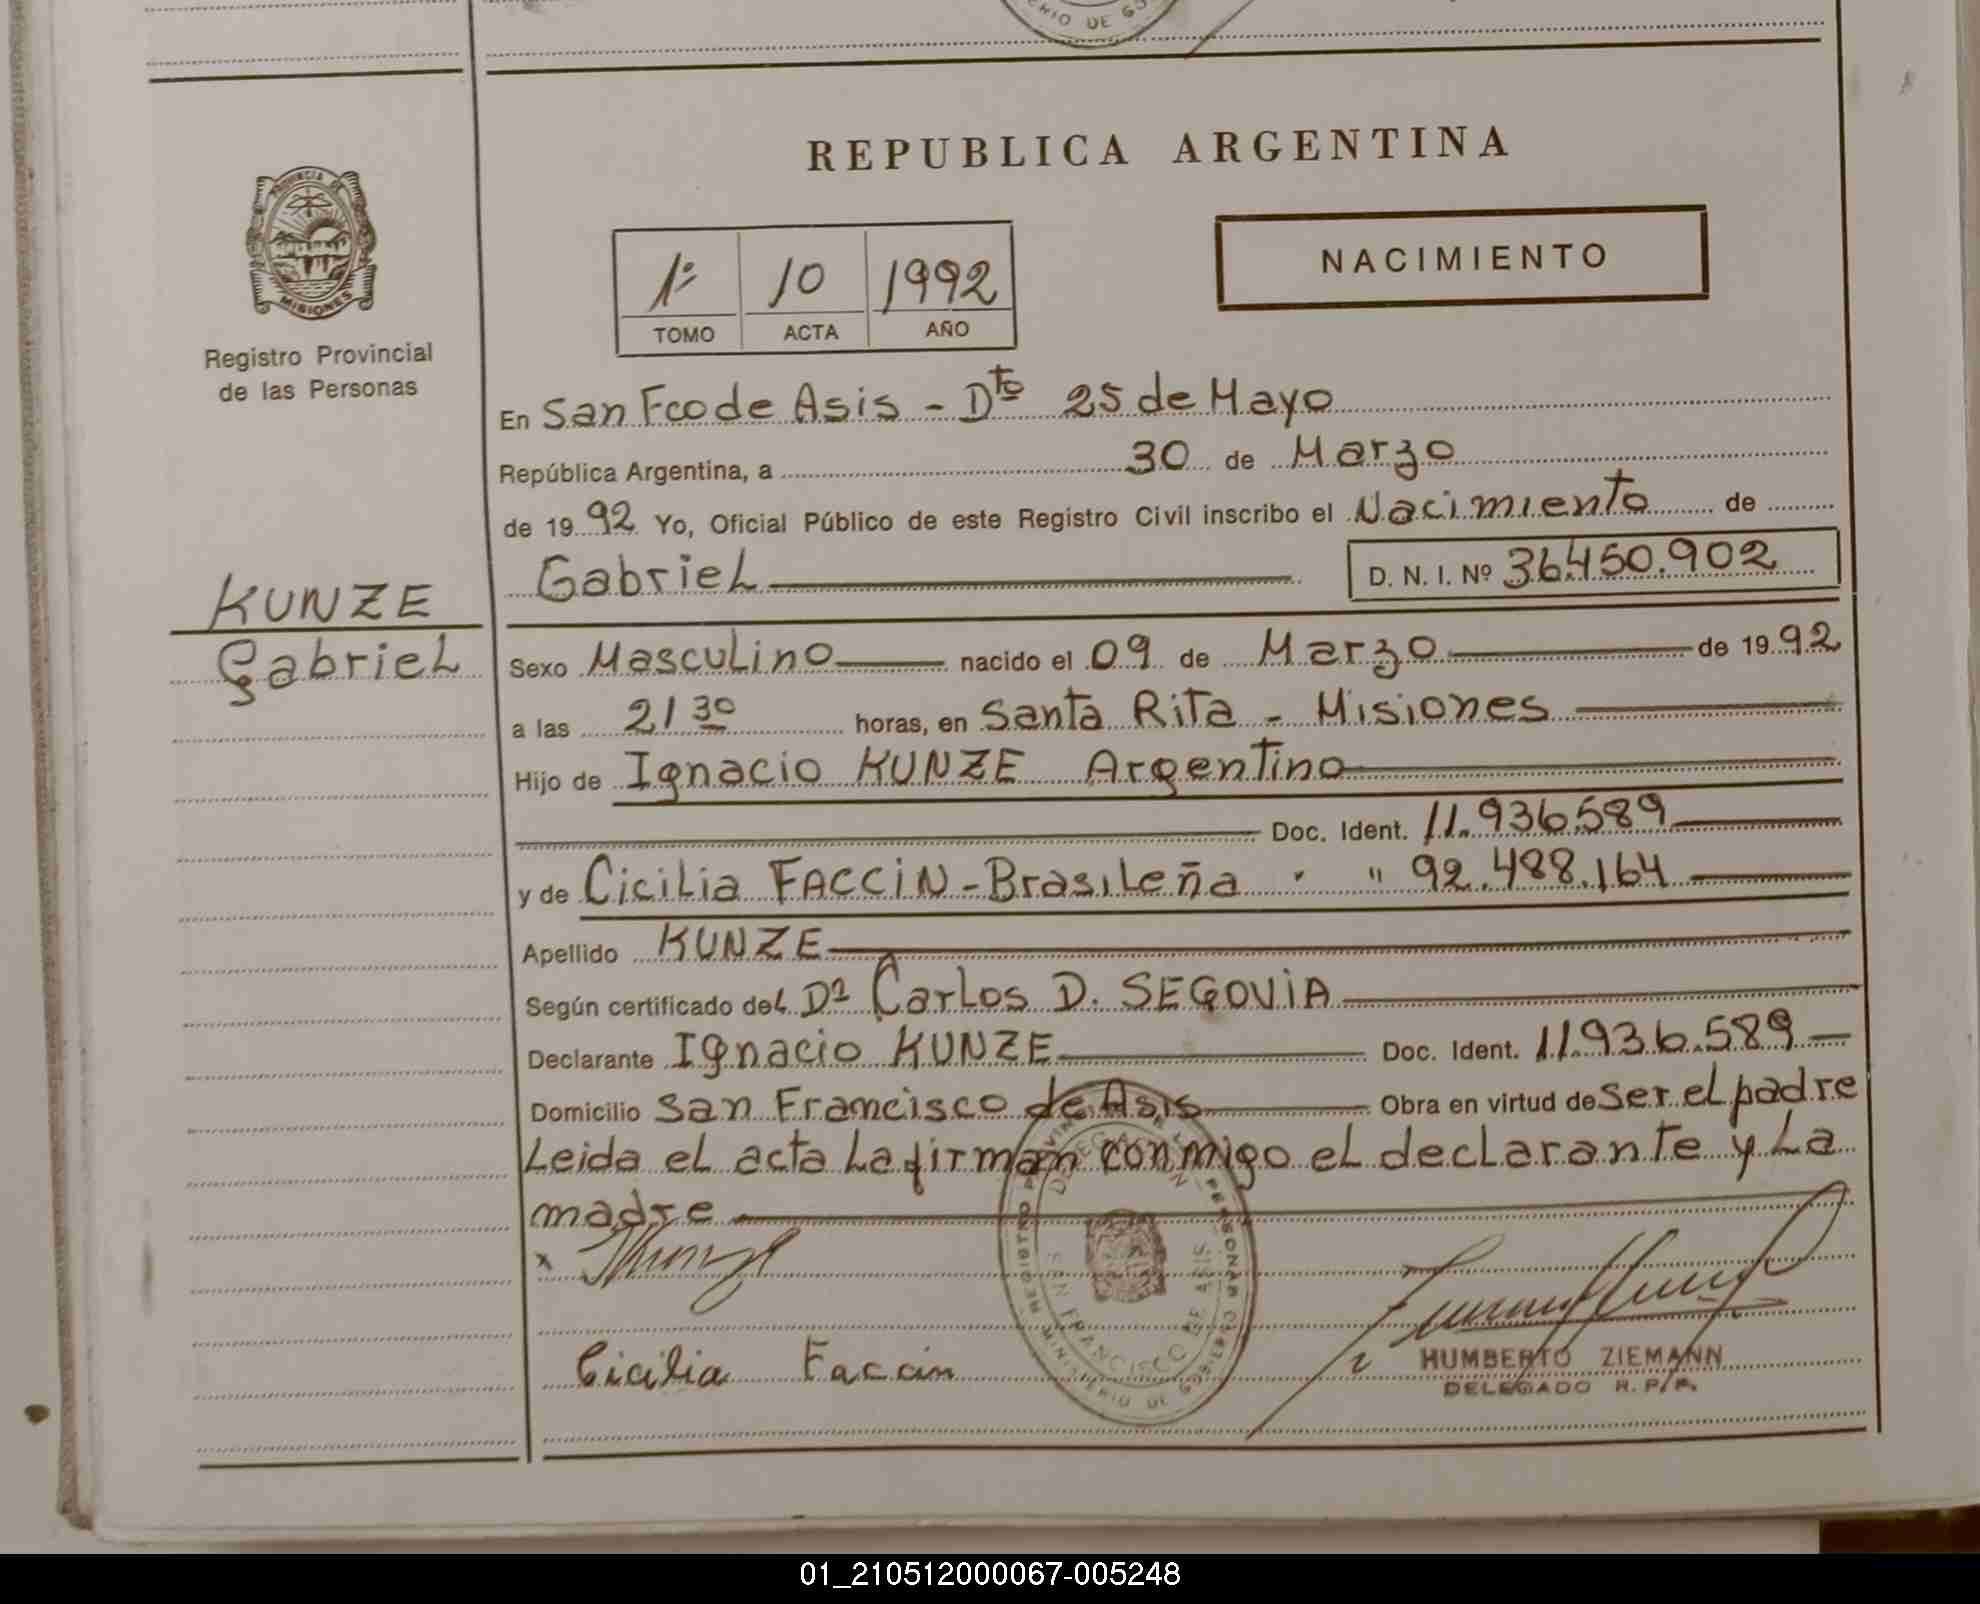 ERIO DE GO
REPUBLICA ARGENTINA
PROVINCIA DE
MISIONES
Registro Provincial
de las Personas
NACIMIENTO
1º 10 1992
TOMO ACTA AÑO
En San Fco de Asis - Dto 25 de Mayo
República Argentina, a 30 de Marzo
de 1992 Yo, Oficial Público de este Registro Civil inscribo el Nacimiento de
Gabriel D. N. I. Nº 36.450.902
KUNZE
Gabriel
Sexo Masculino nacido el 09 de Marzo de 1992
a las 21 30 horas, en Santa Rita - Misiones
Hijo de Ignacio KUNZE Argentino
Doc. Ident. 11.936.589
y de Cicilia FACCIN - Brasileña " " 92.488.164
Apellido KUNZE
Según certificado del Dº Carlos D. SEGOVIA
Declarante Ignacio KUNZE Doc. Ident. 11.936.589
Domicilio San Francisco de Asis Obra en virtud de ser el padre
Leida el acta la firman conmigo el declarante y la
madre
Cicilia Faccin
REGISTRO PROVINCIAL DE LAS PERSONAS
DELEGACION
SAN FRANCISCO DE ASIS
MINISTERIO DE GOBIERNO
HUMBERTO ZIEMANN
DELEGADO R.P.P.
01_210512000067-005248